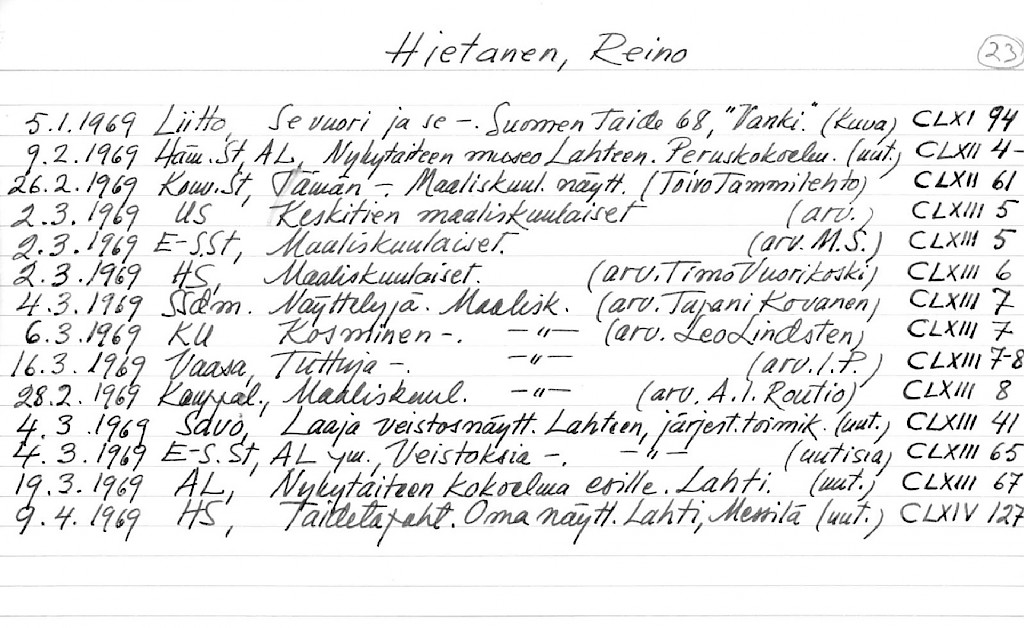 Hietanen, Reino 23
5.1.1969 Liitto, Se vuori ja se -. Suomen Taide 68, "Vanki." (kuva) CLXI 94
9.2.1969 Häm.St, AL, Nykytaiteen museo Lahteen. Peruskokoelm. (uut.) CLXII 4-
26.2.1969 Kouv.St, Tämän -. Maaliskuul. näytt. (Toivo Tammilehto) CLXII 61
2.3.1969 US Keskitien maaliskuulaiset (arv.) CLXIII 5
2.3.1969 E-S.St, Maaliskuulaiset. (arv. M.S.) CLXIII 5
2.3.1969 HS, Maaliskuulaiset. (arv. Timo Vuorikoski) CLXIII 6
4.3.1969 SSdm. Näyttelyjä. Maalisk. (arv. Tapani Kovanen) CLXIII 7
6.3.1969 KU Kosminen -. -"- (arv. Leo Lindsten) CLXIII 7
16.3.1969 Vaasa, Tuttuja -. -"- (arv. I.P.) CLXIII 7-8
28.2.1969 Kauppal., Maaliskuul. -"- (arv. A.I. Routio) CLXIII 8
4.3.1969 Savo, Laaja veistosnäytt. Lahteen, järjest.toimik. (uut.) CLXIII 41
4.3.1969 E-S.St, AL ym., Veistoksia -. -"- (uutisia) CLXIII 65
19.3.1969 AL, Nykytaiteen kokoelma esille. Lahti. (uut.) CLXIII 67
9.4.1969 HS, Taidetapaht. Oma näytt. Lahti, Messilä (uut.) CLXIV 127